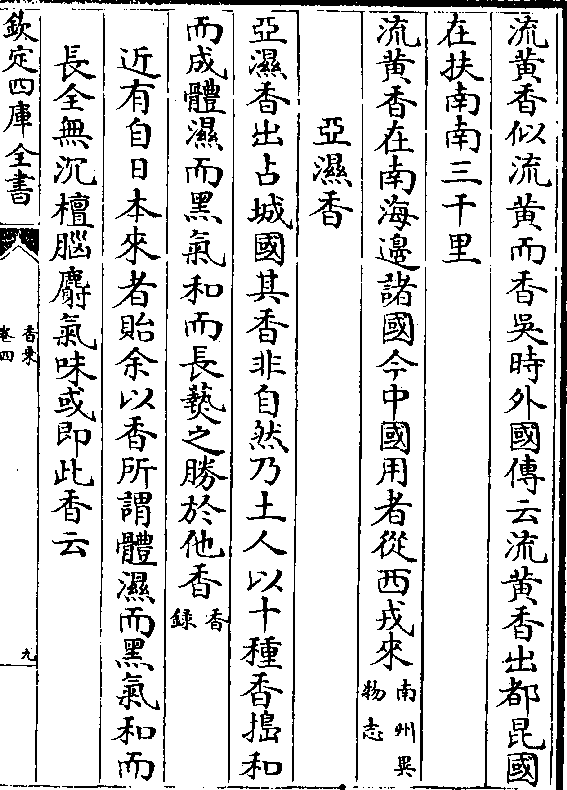 流黄香似流黄而香吳時外國傳云流黄香出都昆國
在扶南南三千里
流黄香在南海邊諸國今中國用者從西戎來南州異物志
亞濕香
亞濕香出占城國其香非自然乃土人以十種香搗和
而成體濕而黑氣和而長爇之勝於他香香錄
近有自日本來者貽余以香所謂體濕而黑氣和而
長全無沉檀腦麝氣味或即此香云
欽定四庫全書
香乘
卷四
九